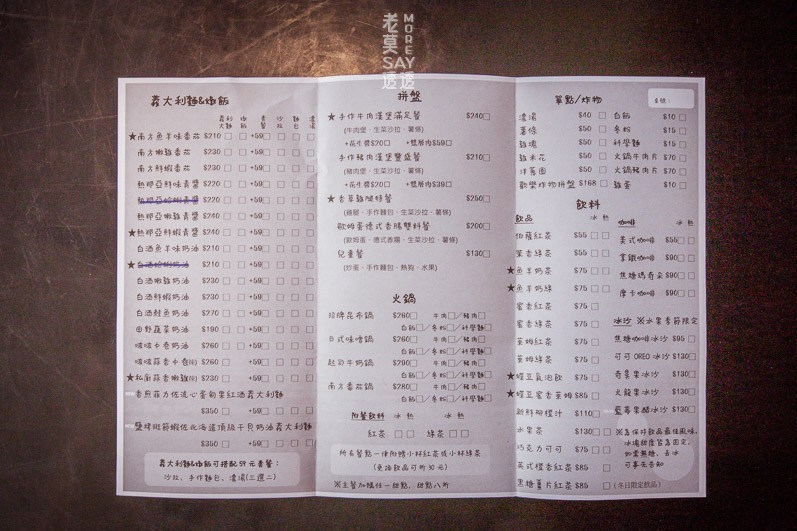 老莫 MORE
SAY
透透
義大利麵&燉飯
義大利麵 燉飯 套餐 沙拉 麵包 濃湯
★南方魚羊味番茄 $210 +59
南方嫩雞番茄 $230 +59
南方鮮蝦番茄 $230 +59
熱那亞鮮味青醬 $220 +59
熱那亞蛤蜊青醬 $220 +59
熱那亞嫩雞青醬 $240 +59
★熱那亞鮮蝦青醬 $240 +59
白酒魚羊味奶油 $210 +59
★白酒蛤蜊奶油 $210 +59
白酒嫩雞奶油 $230 +59
白酒鮮蝦奶油 $230 +59
白酒鮭魚奶油 $270 +59
田野蔬菜奶油 $190 +59
啵啵卡卷奶油 $260 +59
啵啵蒜香卡卷 $260 +59
★私廚蒜香嫩雞 $230 +59
香煎菲力佐流心蛋帕果紅酒義大利麵
$350 +59
鹽烤斑節蝦佐北海道頂級干貝奶油義大利麵
$350 +59
義大利麵&燉飯可搭配59元套餐：
沙拉、手作麵包、濃湯(三選二)
拼盤
★手作牛肉漢堡滿足餐 $240
(牛肉堡、生菜沙拉、薯條)
+花生醬$20 +雙層肉$59
手作豬肉漢堡豐盛餐 $210
(豬肉堡、生菜沙拉、薯條)
+花生醬$20 +雙層肉$39
★香草雞腿特餐 $250
(雞腿、手作麵包、生菜沙拉、薯條)
歐姆蛋德式香腸雙料餐 $200
(歐姆蛋、德式香腸、生菜沙拉、薯條)
兒童餐 $130
(炒蛋、手作麵包、熱狗、水果)
火鍋
招牌昆布鍋 $260 牛肉/豬肉
白飯/冬粉/科學麵
日式味噌鍋 $260 牛肉/豬肉
白飯/冬粉/科學麵
起司牛奶鍋 $290 牛肉/豬肉
白飯/冬粉/科學麵
南方番茄鍋 $280 牛肉/豬肉
白飯/冬粉/科學麵
附餐飲料 冰 熱
紅茶 綠茶
所有餐點一律附贈小杯紅茶或小杯綠茶
(更換飲品可折10元)
※主餐加購任一甜點，甜點八折
單點/炸物
桌號：
濃湯 $40 白飯 $10
薯條 $50 冬粉 $15
雞塊 $50 科學麵 $15
雞米花 $50 火鍋牛肉片 $70
洋蔥圈 $50 火鍋豬肉片 $70
歡樂炸物拼盤 $168 雞蛋 $10
飲料
飲品 冰 熱
伯爵紅茶 $55
茉香綠茶 $55
★魚羊奶茶 $75
★魚羊奶綠 $75
蜜香紅茶 $75
蜜香綠茶 $75
萊姆紅茶 $75
萊姆綠茶 $75
★蝶豆氣泡飲 $75
★蝶豆蜜香萊姆 $85
新鮮柳橙汁 $110
水果茶 $130
巧克力可可 $75
英式橙香紅茶 $85
黑糖薑片紅茶 $85 (冬日限定飲品)
咖啡 冰 熱
美式咖啡 $55
拿鐵咖啡 $90
焦糖瑪奇朵 $90
摩卡咖啡 $90
冰沙 ※水果季節限定
焦糖咖啡冰沙 $95
可可OREO冰沙 $130
奇異果冰沙 $130
火龍果冰沙 $130
藍莓果醋冰沙 $130
※為保持飲品最佳風味，
冰塊甜度皆為固定，
如需無糖、去冰
可事先告知